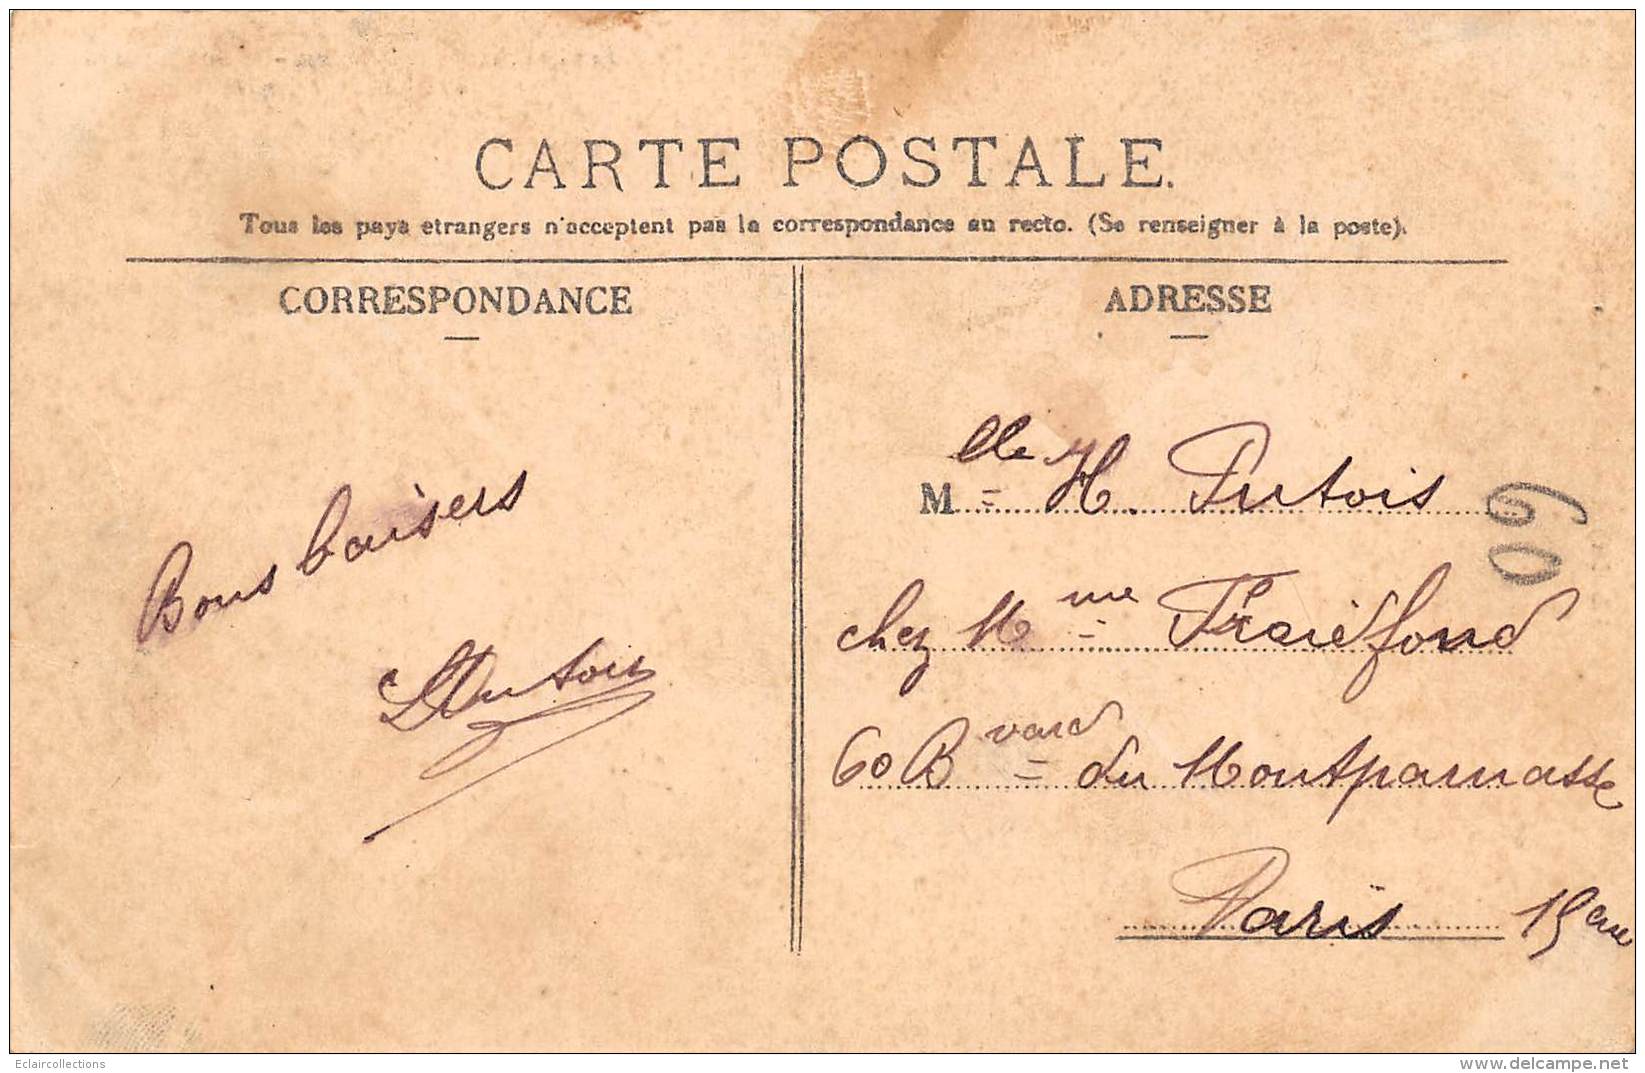 CARTE POSTALE.
Tous les pays etrangers n'acceptent pas la correspondance au recto. (Se renseigner à la poste).
CORRESPONDANCE
Bons baisers
ADRESSE
Mlle H. Putois
chez Mme
60 Bvard du Montparnasse
Paris 15eme
60
Eclaircollections
www.delcampe.net